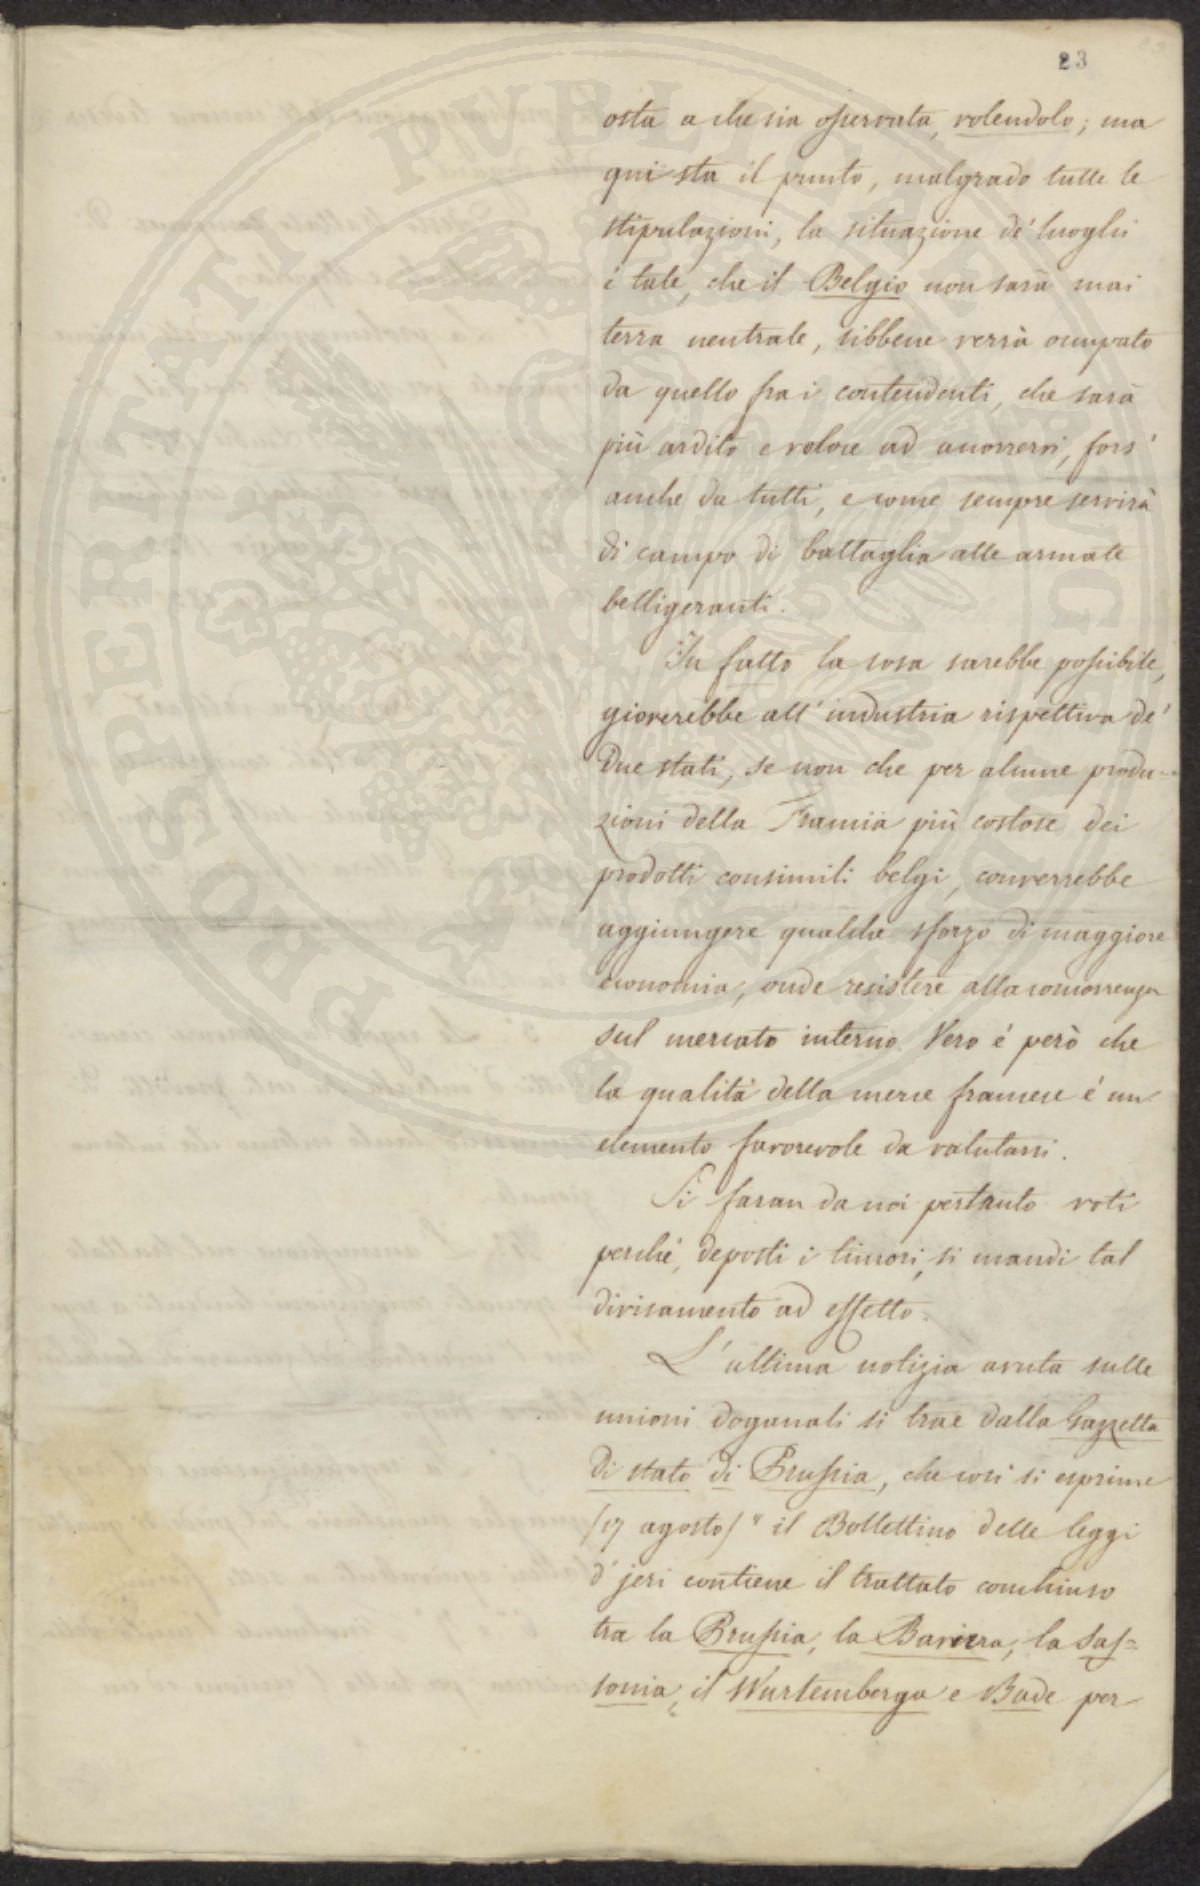 23
osta a che sia osservata, volendolo; ma
qui sta il punto, malgrado tutte le
stipulazioni, la situazione de' luoghi
é tale, che il Belgio non sarà mai
terra neutrale, sibbene verrà occupato
da quello fra i contendenti, che sarà
più ardito e veloce ad accorrervi, fors'
anche da tutti, e come sempre servirà
di campo di battaglia alle armate
belligeranti.
In fatto la cosa sarebbe possibile,
gioverebbe all'industria rispettiva de'
due stati, se non che per alcune produ-
zioni della Francia più costose dei
prodotti consimili belgi, converrebbe
aggiungere qualche sforzo di maggiore
economia, onde resistere alla concorrenza
sul mercato interno. Vero é però che
la qualità della merce francese é un
elemento favorevole da valutarsi.
Si faran da noi pertanto voti
perché, deposti i timori, si mandi tal
divisamento ad effetto.
L'ultima notizia avuta sulle
unioni doganali si trae dalla Gazzetta
di stato di Prussia, che così si esprime
(17 agosto) " il Bollettino delle leggi
d'jeri contiene il trattato conchiuso
tra la Prussia, la Baviera, la Sas=
sonia, il Wurtemberga e Bade per
PROSPERITATI PUBLICAE